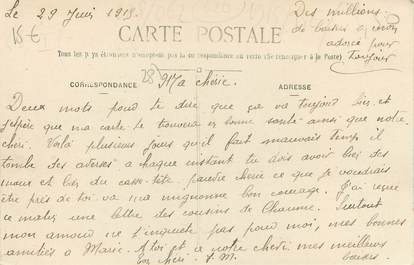 Le 29 Juin 1919.
Des millions
de baisers
adoré pour
toujour
15€
CARTE POSTALE
Tous les pays étrangers n'acceptent pas la correspondance au verso (Se renseigner à la Poste)
CORRESPONDANCE
ADRESSE
28
Ma chérie.
Deux mots pour te dire que ça va toujour bien et
j'espère que ma carte te trouvera en bonne santé ainsi que notre
cheri. Voilà plusieurs jours qu'il fait mauvais temps il
tombe des averses a chaque instant tu dois avoir bien des
et bien du casse-tête pauvre cherie ce que je voudrais
être près de toi va ma mignonne bon courage. J'ai reçue
ce matin une lettre des cousins de Chaume. Surtout
mon amour ne t'inquiete pas pour moi, mes bonnes
amitiés a Marie. A toi et a notre cheri mes meilleurs
baisers
Ton